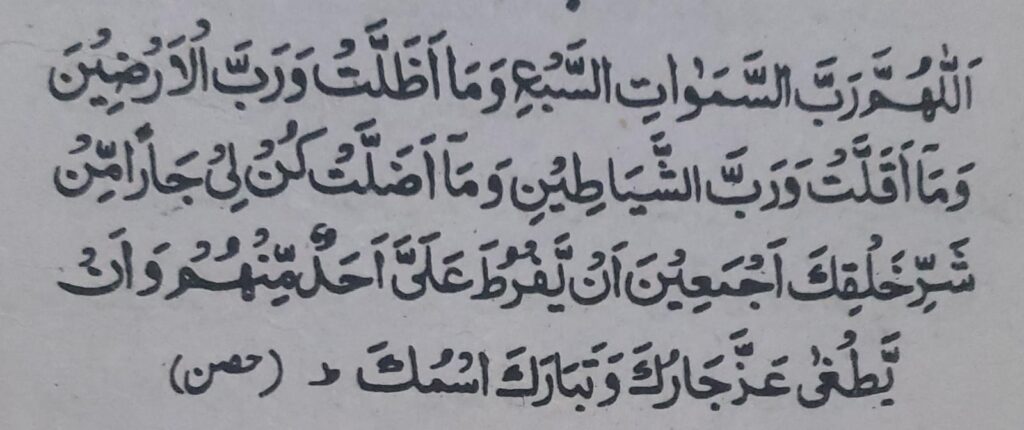 اَللّٰهُمَّ رَبَّ السَّمَوٰاتِ السَّبْعِ وَمَا اَظَلَّتْ وَرَبَّ الْاَرْضِيْنَ
وَمَا اَقَلَّتْ وَرَبَّ الشَّيَاطِيْنِ وَمَا اَضَلَّتْ كُنْ لِيْ جَارًا مِّنْ
شَرِّ خَلْقِكَ اَجْمَعِيْنَ اَنْ يَّفْرُطَ عَلَيَّ اَحَدٌ مِّنْهُمْ وَاَنْ
يَّطْغٰى عَزَّ جَارُكَ وَتَبَارَكَ اسْمُكَ ط (حصن)